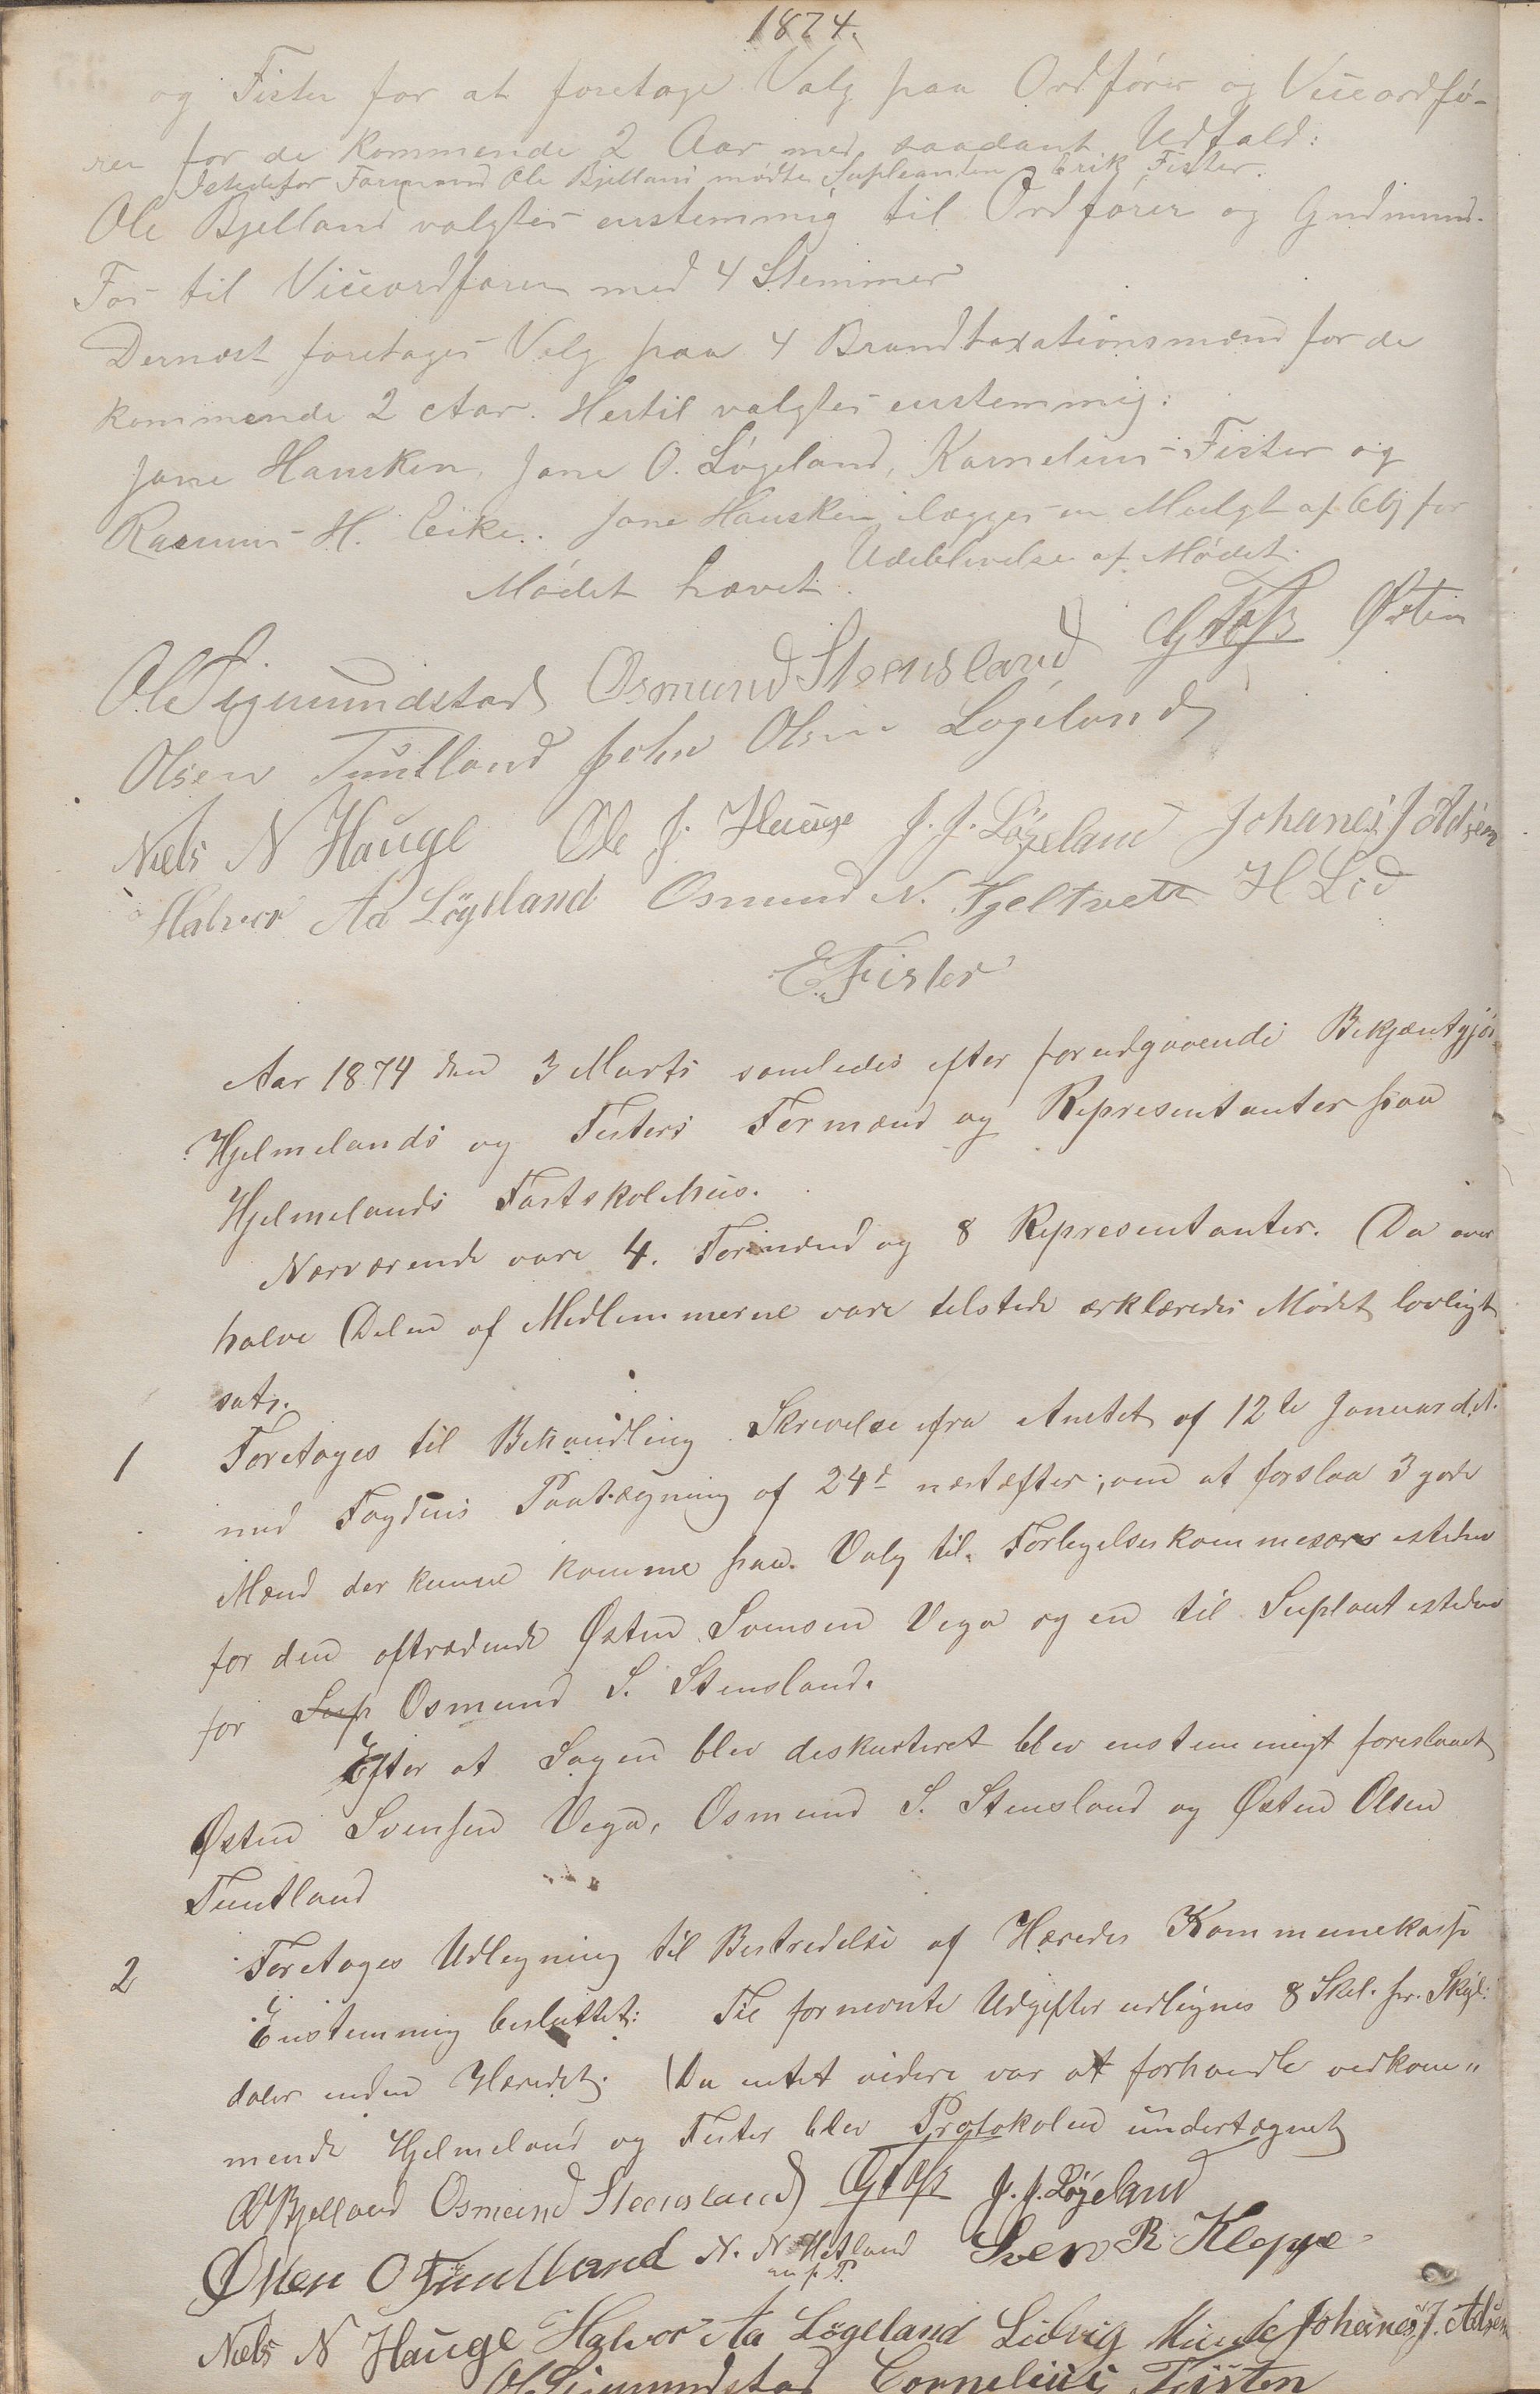 1874.
og Fister for at foretage Valg paa Ordfører og Viceordfø-
rer for de kommende 2 Aar med saadant Udfald:
Istedefor Formand Ole Bjelland mødte Supleanten Erik Fister.
Ole Bjelland valgtes enstemmig til Ordfører og Gudmund
Fos til Viceordfører med 4 Stemmer
Dernæst foretages Valg paa 4 Brandtaxationsmænd for de
kommende 2 Aar. Hertil valgtes enstemmig:
Jone Hausken, Jone O. Løgeland, Kornelius Fister og
Rasmus H. Eike. Jone Hausken ilægges en Mulgt af for
Udeblivelse af Mødet.
Mødet hævet.
Ole Sigmundstad Osmund Stensland GFoss Østen
Olsen Tuntland John Olsen Løgeland
Niels N Hauge Ole J. Hauge J. J. Løgeland Johanes J Adsen
Halvor Aa Løgeland Osmund N. Hjeltvett H Lid
E. Fister
Aar 1874 den 3 Marts samledes efter forudgaaende Bekjæntgjør
Hjelmelands og Fisters Formænd og Representanter paa
Hjelmelands Fastskolehus.
Nærværende vare 4. Formænd og 8 Representanter. Da over
halve Delen af Medlemmerne vare tilstede erklæredes Mødet lovligt
sat.
1 Foretages til Behandling Skrivelse fra Amtet af 12te Januar d.A.
med Fogdens Paategning af 24d næstefter; om at forslaa 3 gode
Mænd der kunne komme paa Valg til Forligelseskommesær isteden
for den aftrædende Østen Svensen Vega og en til Suplant isteden
for Sup Osmund S. Stensland.
Efter at Sagen blev diskuteret blev enstemmigt foreslaaet
Østen Svensen Vega, Osmund S. Stensland og Østen Olsen
Tuntland
2 Foretages Udlegning til Bestridelse af Heredes Kommunekasse
Enstemmig besluttet: Til fornevnte Udgifter udlignes 8 Skil. pr. Skyl:
daler inden Heredet. Da intet videre var at forhandle vedkom"
mende Hjelmeland og Fister blev Protokolen undertegnet
OBjelland Osmund Stensland GFoss J. J. Løgeland
Østen O Tuntland N. N Hetland Sven R Kleppe
m. p. P.
Niels N Hauge Halvor Aa Løgeland Ludvig Johanes J. Adsen
Ole Sigmundstad Cornelius Fisten